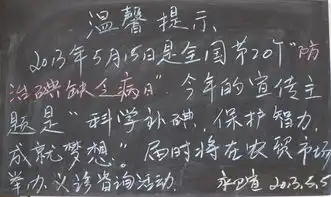 温馨提示
2013年5月15日是全国第20个"防
治碘缺乏病日"。今年的宣传主
题是"科学补碘,保护智力,
成就梦想"。届时将在农贸市场
举办义诊咨询活动。
宣 2013.5.5